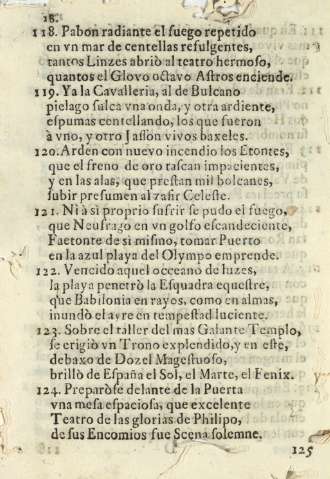 28.
118. Pabon radiante el fuego repetido
en vn mar de centellas refulgentes,
tantos Linzes abriò al teatro hermoso,
quantos el Glovo octavo Astros enciende.
119. Ya la Cavalleria, al de Bulcano
pielago sulca vna onda, y otra ardiente,
espumas centellando, los que fueron
à vno, y otro Jasson vivos baxeles.
120. Arden con nuevo incendio los Etontes,
que el freno de oro tascan impacientes,
y en las alas, que prestan mil bolcanes,
subir presumen al zafir Celeste.
121. Ni à si proprio sufrir se pudo el fuego,
que Neufrago en vn golfo escandeciente,
Faetonte de si mismo, tomar Puerto
en la azul playa del Olympo emprende.
122. Vencido aquel occeanò de luzes,
la playa penetrò la Esquadra equestre,
que Babilonia en rayos, como en almas,
inundò el ayre en tempestad luciente.
123. Sobre el taller del mas Galante Templo,
se erigiò vn Trono explendido, y en este,
debaxo de Dozel Magestuoso,
brillò de España el Sol, el Marte, el Fenix.
124. Preparòse delante de la Puerta
vna mesa espaciosa, que excelente
Teatro de las glorias de Philipo,
de sus Encomios fue Scena solemne.
125